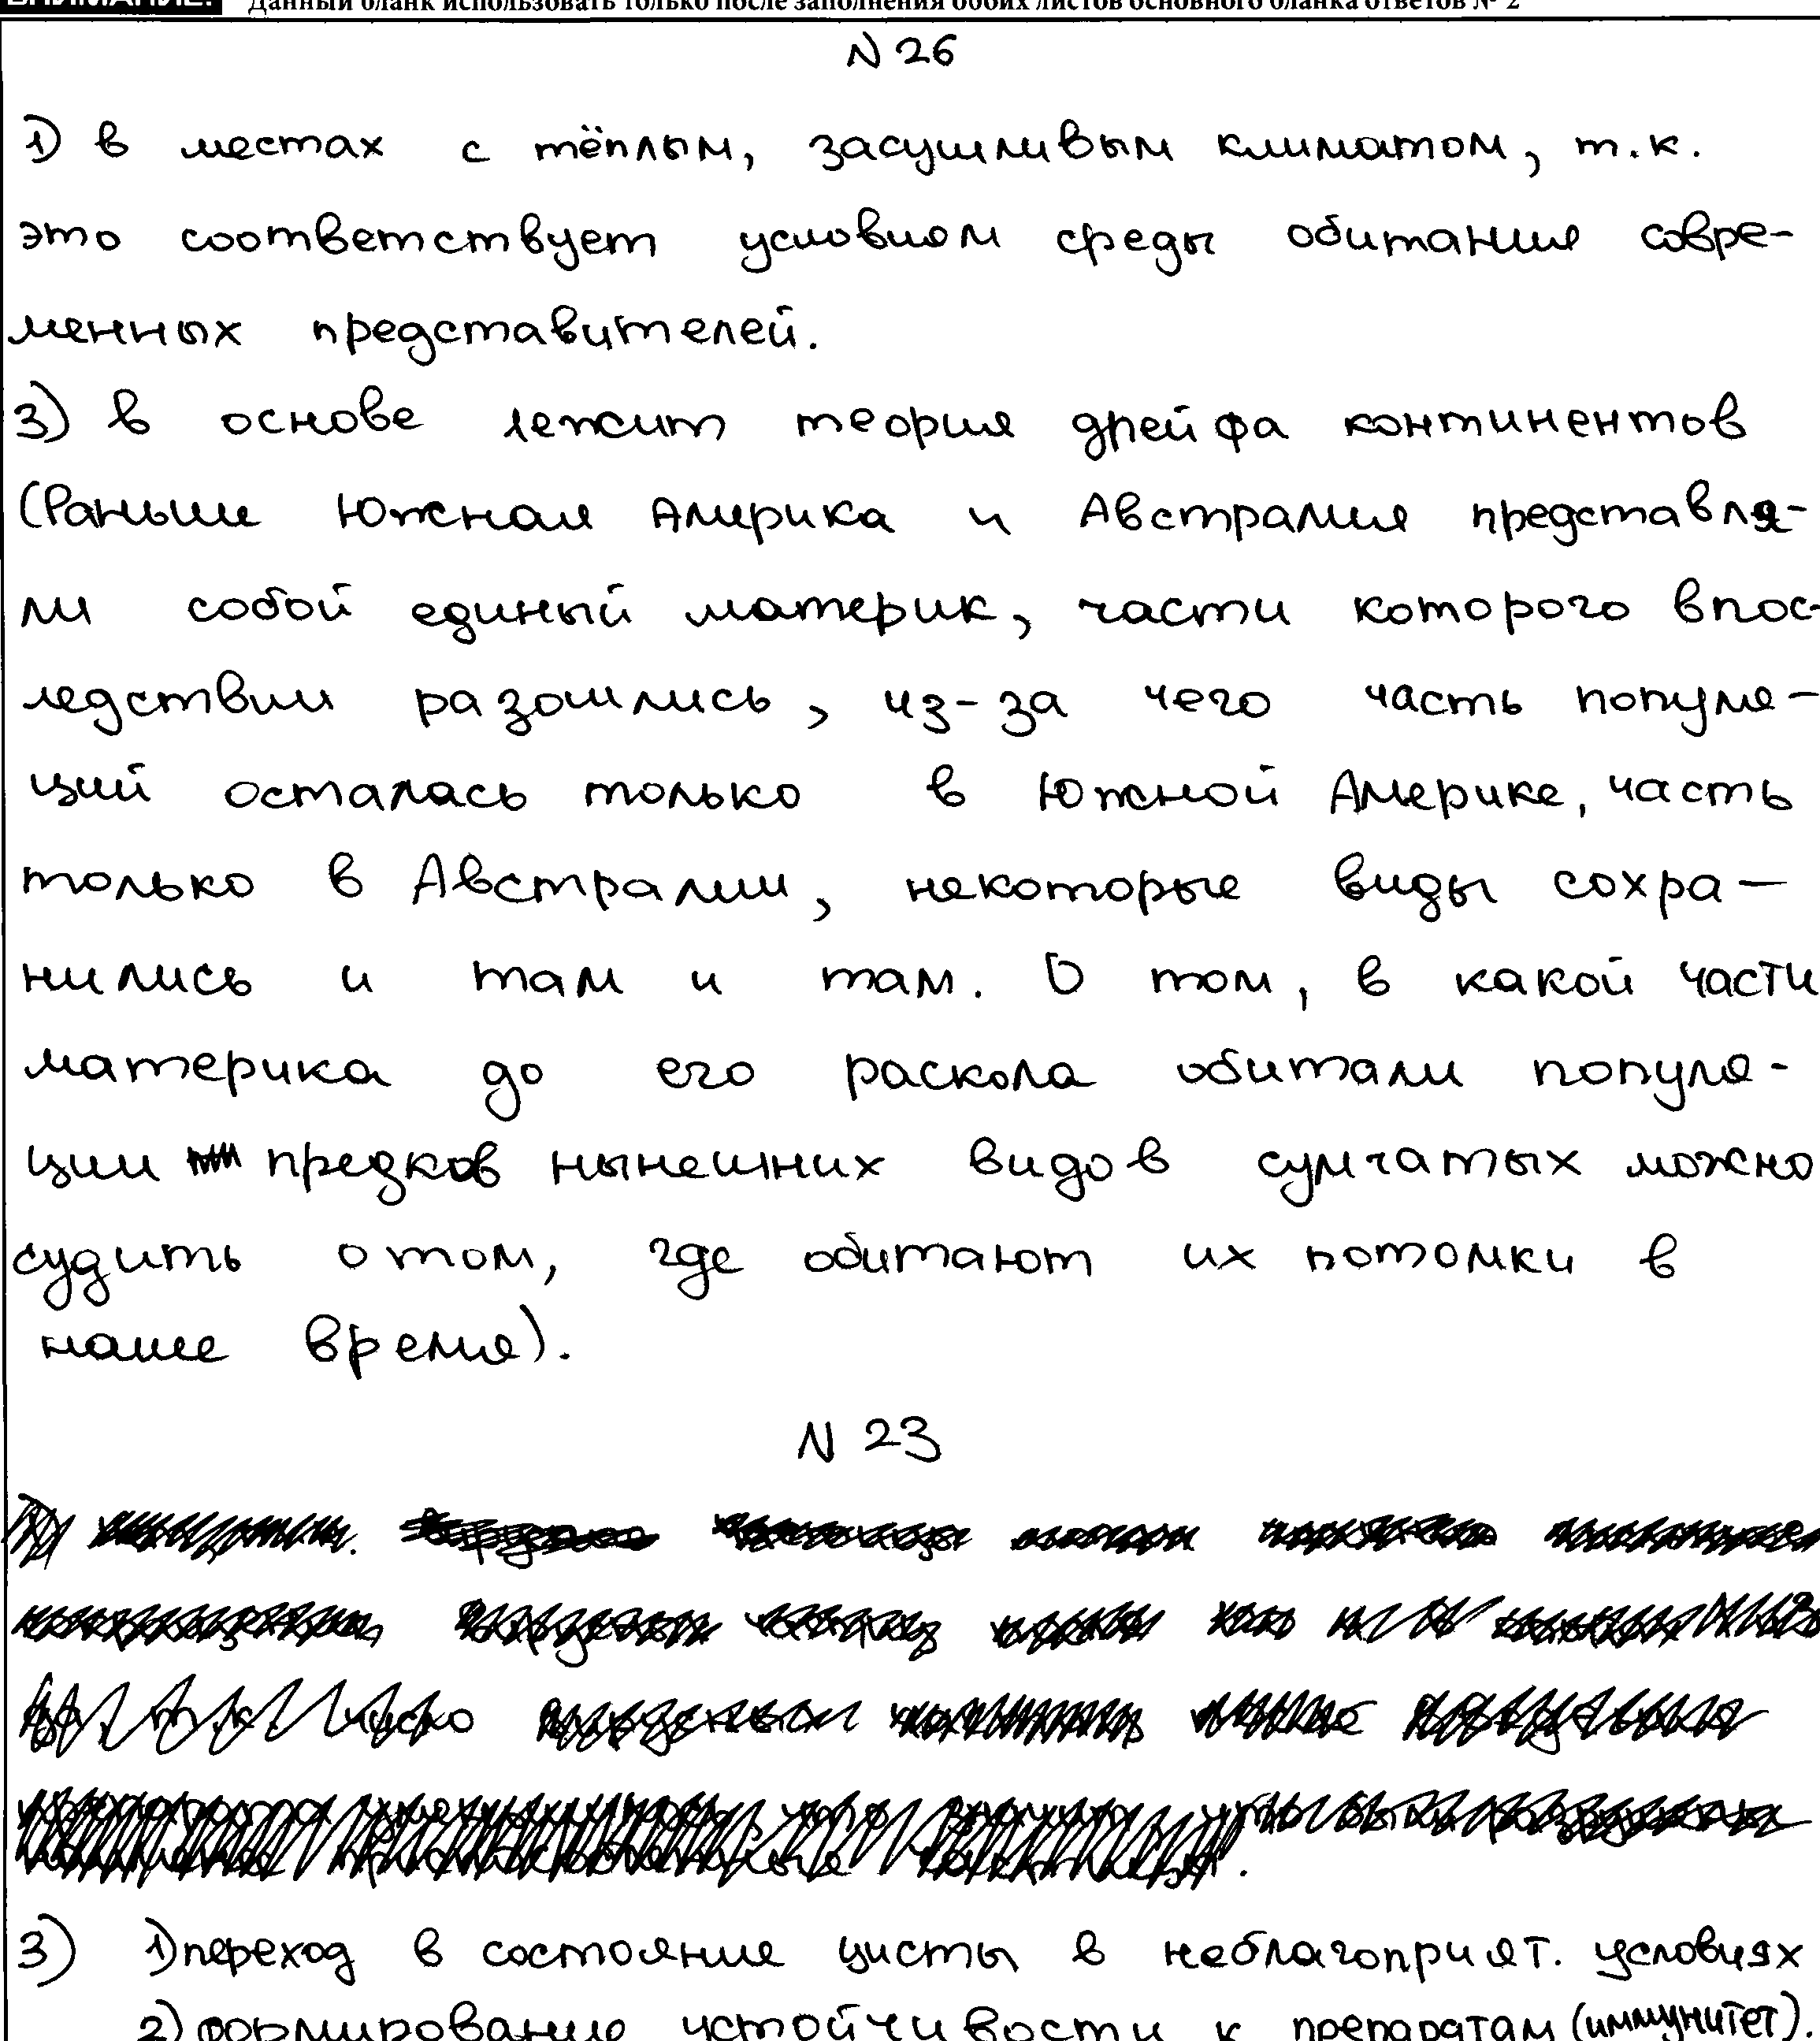 ВНИМАНИЕ! Данный бланк использовать только после заполнения обоих листов основного бланка ответов № 2
N 26
1) в местах с тёплым, засушливым климатом, т.к.
это соответствует условиям среды обитания совре-
менных представителей.
3) в основе лежит теория дрейфа континентов
(Раньше Южная Америка и Австралия представля-
ли собой единый материк, части которого впос-
ледствии разошлись, из-за чего часть популя-
ций осталась только в Южной Америке, часть
только в Австралии, некоторые виды сохра-
нились и там и там. О том, в какой части
материка до его раскола обитали популя-
ции предков нынешних видов сумчатых можно
судить о том, где обитают их потомки в
наше время).
N 23
3) 1) переход в состояние цисты в неблагоприят. условиях
2) формирование устойчивости к препаратам (иммунитет)